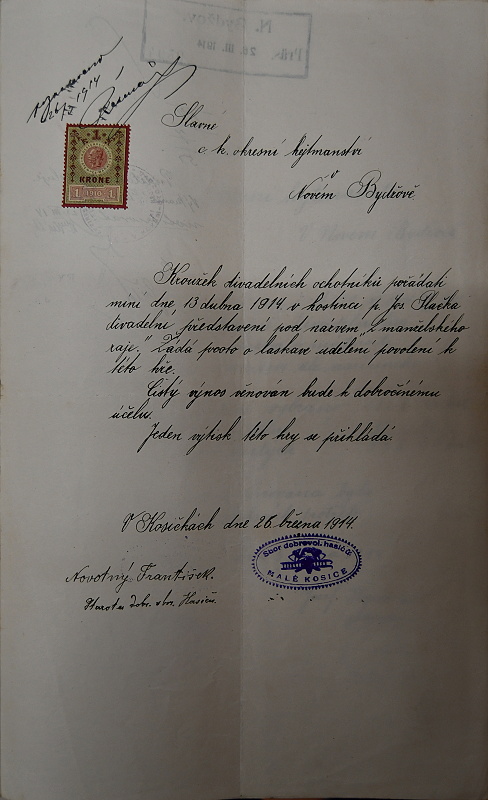 N. Bydžov.
Präs. 28. III. 1914
26/3 1914
1
KRONE
1 1910 1
Slavné
c. k. okresní hejtmanství
v
Novém Bydžově.
Kroužek divadelních ochotníků pořádati
míní dne 13 dubna 1914 v hostinci p. Jos. Slačka
divadelní představení pod názvem „Z manželského
ráje." Žádá proto o laskavé udělení povolení k
této hře.
Čistý výnos věnován bude k dobročinému
účelu.
Jeden výtisk této hry se přikládá.
V Kosičkách dne 26. března 1914.
Sbor dobrovol. hasičů
MALÉ KOSICE
Novotný František.
Starosta dobr. sbor. Hasičů.